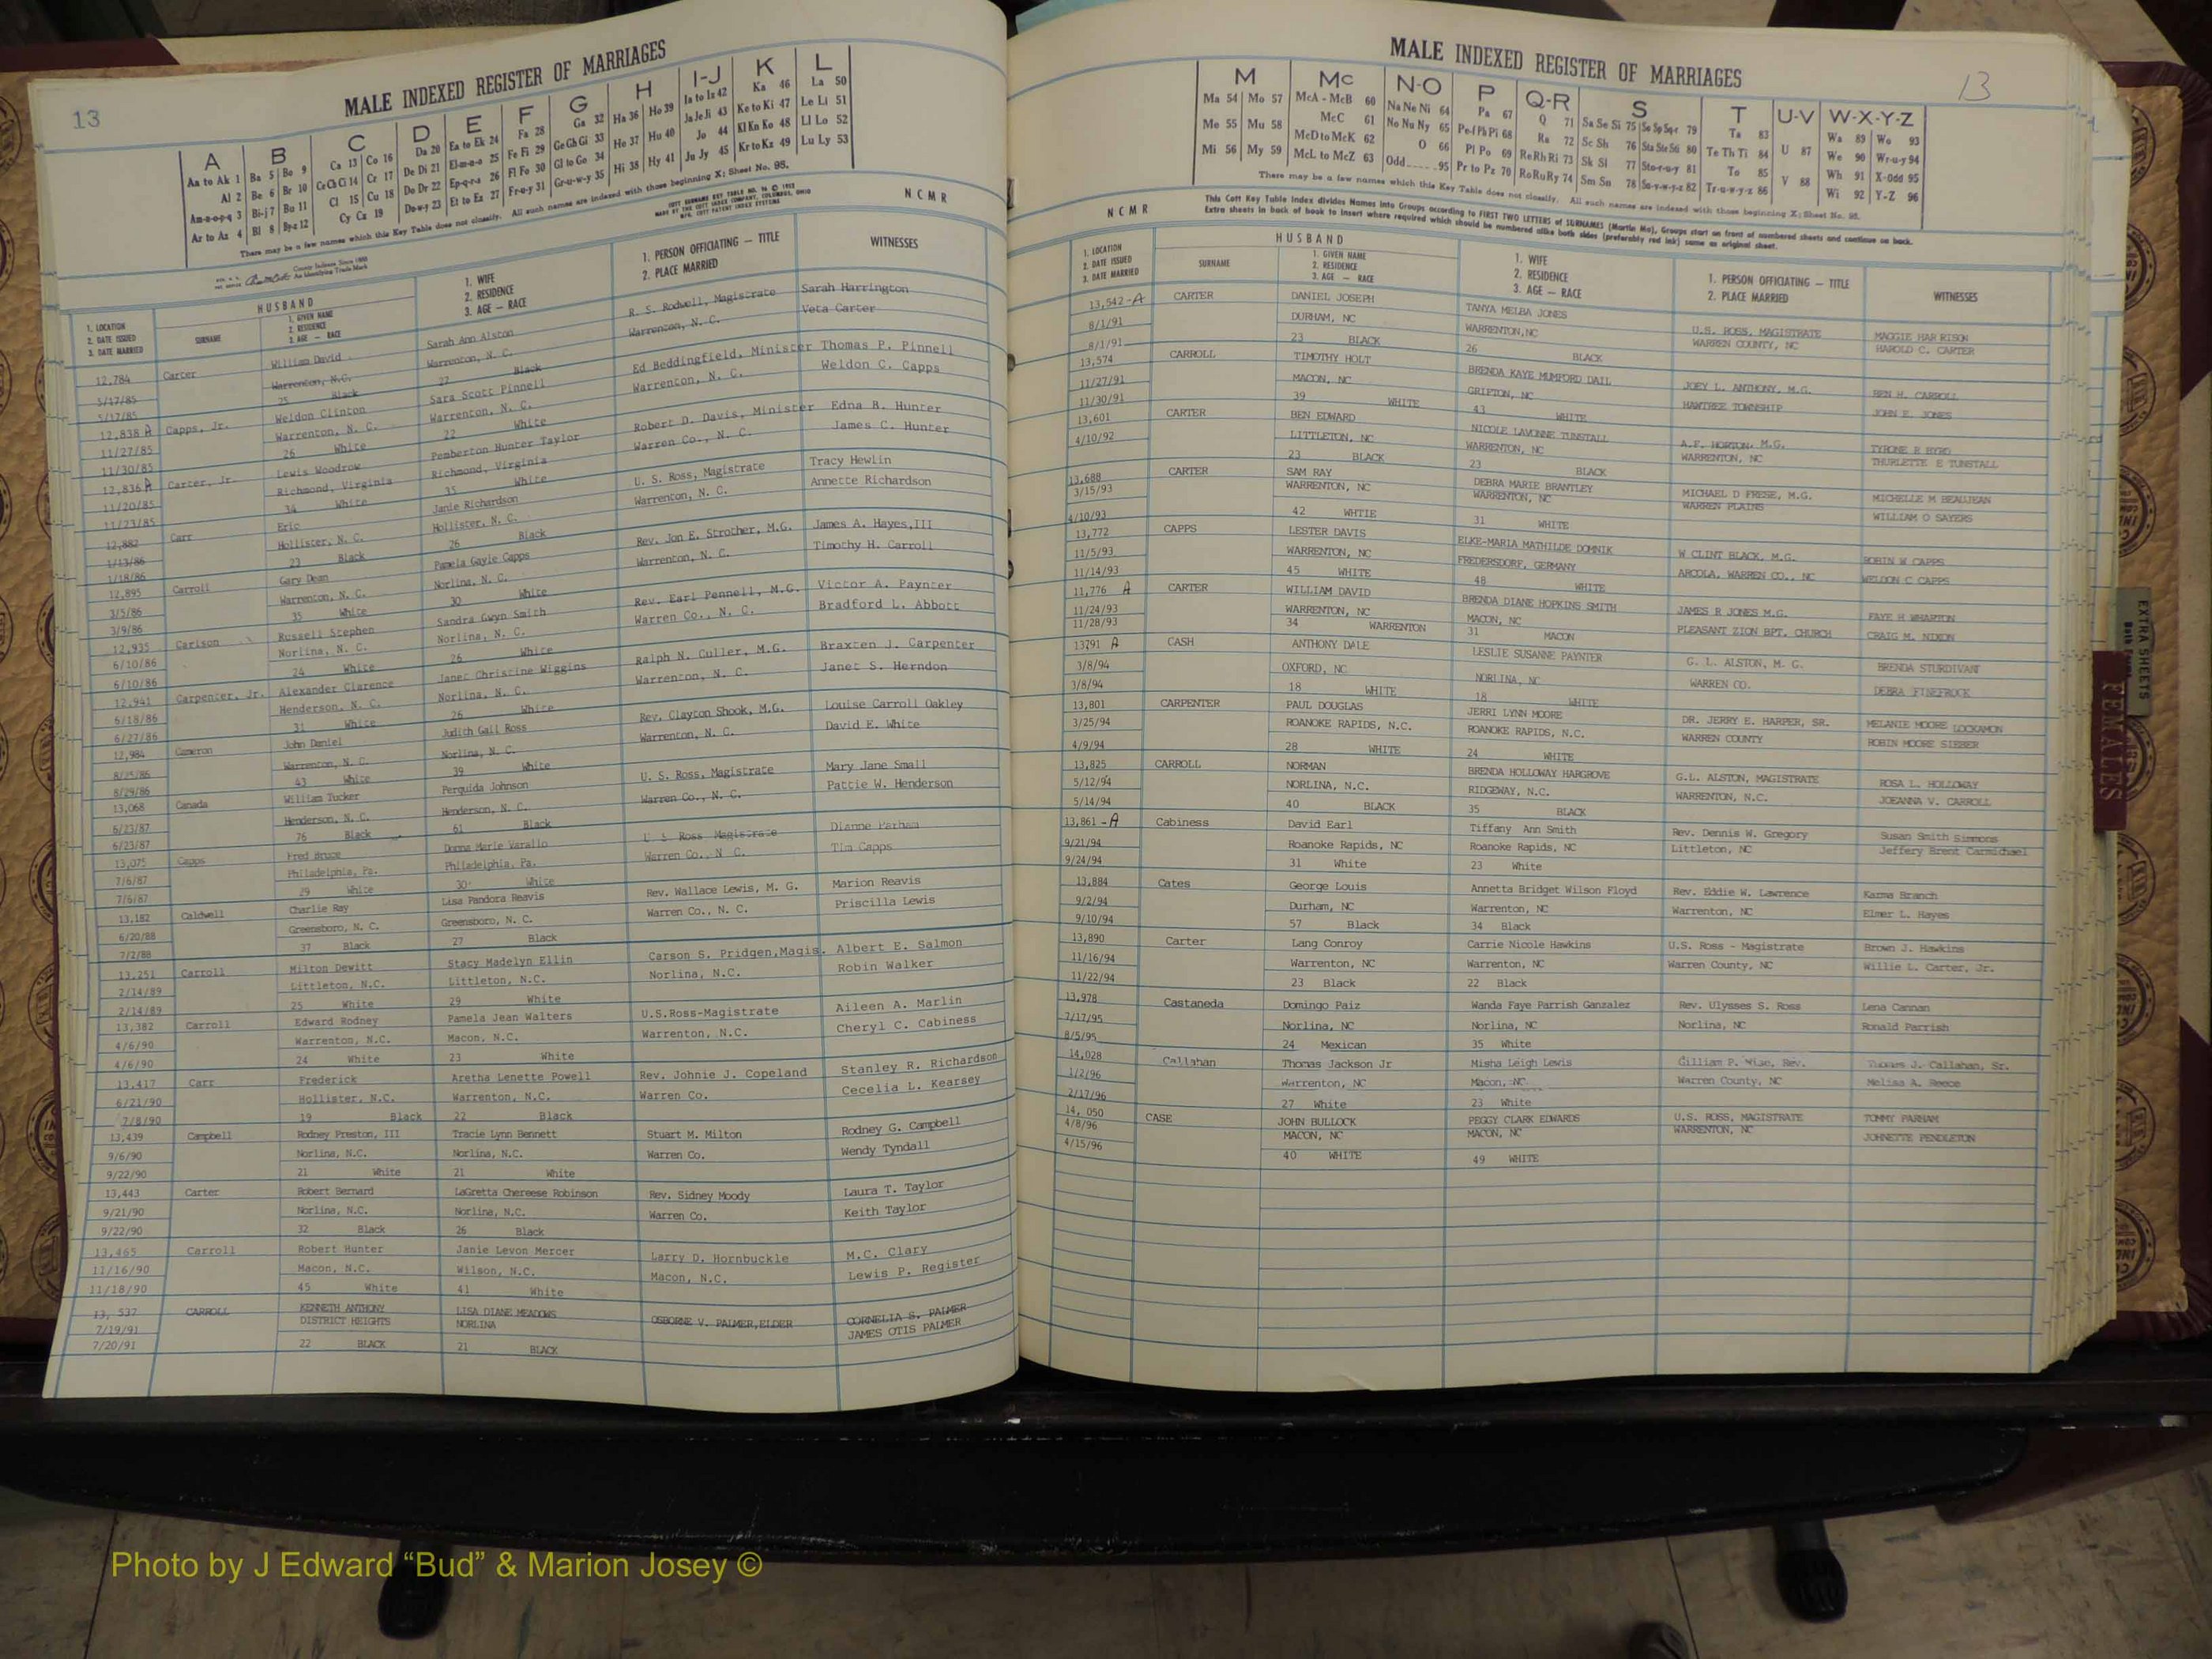 13
MALE INDEXED REGISTER OF MARRIAGES
A B C D E F G H I-J K L
Aa to Ak 1 Ba 5 Be 9 Ca 13 Co 16 Da 20 Ea to Ek 24 Fa 28 Ga 32 Ha 36 Ho 39 Ia to Iz 42 Ka 46 La 50
Al 2 Be 6 Br 10 Ce Ch Ci 14 Cr 17 De Di 21 El-m-n-o 25 Fe Fi 29 Ge Gh Gi 33 He 37 Hu 40 Ja Je Ji 43 Ke to Ki 47 Le Li 51
Am-n-o-p-q 3 Bi-j 7 Bu 11 Cl 15 Cu 18 Do Dr 22 Ep-q-r-s 26 Fl Fo 30 Gl to Go 34 Hi 38 Hy 41 Jo 44 Kl Kn Ko 48 Ll Lo 52
Ar to Az 4 Bl 8 By-z 12 Cy Cz 19 Du-w-y 23 Et to Ez 27 Fr-u-y 31 Gr-u-w-y 35 Ju Jy 45 Kr to Kz 49 Lu Ly 53
There may be a few names which this Key Table does not classify. All such names are indexed with those beginning X; Sheet No. 95.
N C M R
HUSBAND
1. LOCATION
2. DATE ISSUED
3. DATE MARRIED
SURNAME
1. GIVEN NAME
2. RESIDENCE
3. AGE — RACE
1. WIFE
2. RESIDENCE
3. AGE — RACE
1. PERSON OFFICIATING — TITLE
2. PLACE MARRIED
WITNESSES
12,784 Carter William David Sarah Ann Alston R. S. Rodwell, Magistrate Sarah Harrington
5/17/85 Warrenton, N.C. Warrenton, N. C. Warrenton, N. C. Veta Carter
5/17/85 25 Black 27 Black
12,838 A Capps, Jr. Weldon Clinton Sara Scott Pinnell Ed Beddingfield, Minister Thomas P. Pinnell
11/27/85 Warrenton, N. C. Warrenton, N. C. Warrenton, N. C. Weldon C. Capps
11/30/85 26 White 22 White
12,836 A Carter, Jr. Lewis Woodrow Pemberton Hunter Taylor Robert D. Davis, Minister Edna R. Hunter
11/20/85 Richmond, Virginia Richmond, Virginia Warren Co., N. C. James C. Hunter
11/23/85 34 White 35 White
12,882 Carr Eric Janie Richardson U. S. Ross, Magistrate Tracy Hewlin
1/13/86 Hollister, N. C. Hollister, N. C. Warrenton, N. C. Annette Richardson
1/18/86 23 Black 26 Black
12,895 Carroll Gary Dean Pamela Gayle Capps Rev. Jon E. Strother, M.G. James A. Hayes, III
3/5/86 Warrenton, N. C. Norlina, N. C. Warrenton, N. C. Timothy H. Carroll
3/9/86 35 White 30 White
12,935 Carlson Russell Stephen Sandra Gwyn Smith Rev. Earl Pennell, M.G. Victor A. Paynter
6/10/86 Norlina, N. C. Norlina, N. C. Warren Co., N. C. Bradford L. Abbott
6/10/86 24 White 26 White
12,941 Carpenter, Jr. Alexander Clarence Janet Christine Wiggins Ralph N. Culler, M.G. Braxten J. Carpenter
6/18/86 Henderson, N. C. Norlina, N. C. Warrenton, N. C. Janet S. Herndon
6/27/86 31 White 26 White
12,984 Cameron John Daniel Judith Gail Ross Rev. Clayton Shook, M.G. Louise Carroll Oakley
8/25/86 Warrenton, N. C. Norlina, N. C. Warrenton, N. C. David E. White
8/29/86 43 White 39 White
13,068 Canada William Tucker Perquida Johnson U. S. Ross, Magistrate Mary Jane Small
6/23/87 Henderson, N. C. Henderson, N. C. Warren Co., N. C. Pattie W. Henderson
6/23/87 76 Black 61 Black
13,075 Capps Fred Bruce Donna Marie Varallo U S Ross Magistrate Dianne Parham
7/6/87 Philadelphia, Pa. Philadelphia, Pa. Warren Co., N C. Tim Capps
7/6/87 29 White 30 White
13,182 Caldwell Charlie Ray Lisa Pandora Reavis Rev. Wallace Lewis, M. G. Marion Reavis
6/20/88 Greensboro, N. C. Greensboro, N. C. Warren Co., N. C. Priscilla Lewis
7/2/88 37 Black 27 Black
13,251 Carroll Milton Dewitt Stacy Madelyn Ellin Carson S. Pridgen,Magis. Albert E. Salmon
2/14/89 Littleton, N.C. Littleton, N.C. Norlina, N.C. Robin Walker
2/14/89 25 White 29 White
13,382 Carroll Edward Rodney Pamela Jean Walters U.S.Ross-Magistrate Aileen A. Marlin
4/6/90 Warrenton, N.C. Macon, N.C. Warrenton, N.C. Cheryl C. Cabiness
4/6/90 24 White 23 White
13,417 Carr Frederick Aretha Lenette Powell Rev. Johnie J. Copeland Stanley R. Richardson
6/21/90 Hollister, N.C. Warrenton, N.C. Warren Co. Cecelia L. Kearsey
7/8/90 19 Black 22 Black
13,439 Campbell Rodney Preston, III Tracie Lynn Bennett Stuart M. Milton Rodney G. Campbell
9/6/90 Norlina, N.C. Norlina, N.C. Warren Co. Wendy Tyndall
9/22/90 21 White 21 White
13,443 Carter Robert Bernard LaGretta Chereese Robinson Rev. Sidney Moody Laura T. Taylor
9/21/90 Norlina, N.C. Norlina, N.C. Warren Co. Keith Taylor
9/22/90 32 Black 26 Black
13,465 Carroll Robert Hunter Janie Levon Mercer Larry D. Hornbuckle M.C. Clary
11/16/90 Macon, N.C. Wilson, N.C. Macon, N.C. Lewis P. Register
11/18/90 45 White 41 White
13, 537 CARROLL KENNETH ANTHONY LISA DIANE MEADOWS OSBORNE V. PALMER,ELDER CORNELIA S. PALMER
7/19/91 DISTRICT HEIGHTS NORLINA JAMES OTIS PALMER
7/20/91 22 BLACK 21 BLACK
MALE INDEXED REGISTER OF MARRIAGES
13
M Mc N-O P Q-R S T U-V W-X-Y-Z
Ma 54 Mo 57 McA - McB 60 Na Ne Ni 64 Pa 67 Q 71 Sa Se Si 75 So Sp Sq-r 79 Ta 83 Wa 89 Wo 93
Me 55 Mu 58 McC 61 No Nu Ny 65 Pe-f Ph Pi 68 Ra 72 Sc Sh 76 Sta Ste Sti 80 Te Th Ti 84 U 87 We 90 Wr-u-y 94
Mi 56 My 59 McD to McK 62 O 66 Pl Po 69 Re Rh Ri 73 Sk Sl 77 Sto-r-u-y 81 To 85 V 88 Wh 91 X-Odd 95
McL to McZ 63 Odd 95 Pr to Pz 70 Ro Ru Ry 74 Sm Sn 78 Su-v-w-y-z 82 Tr-u-w-y-z 86 Wi 92 Y-Z 96
There may be a few names which this Key Table does not classify. All such names are indexed with those beginning X; Sheet No. 95.
This Cott Key Table Index divides Names into Groups according to FIRST TWO LETTERS of SURNAMES (Martin Ma), Groups start on front of numbered sheets and continue on back.
Extra sheets in back of book to insert where required which should be numbered alike both sides (preferably red ink) same as original sheet.
N C M R
HUSBAND
1. LOCATION
2. DATE ISSUED
3. DATE MARRIED
SURNAME
1. GIVEN NAME
2. RESIDENCE
3. AGE — RACE
1. WIFE
2. RESIDENCE
3. AGE — RACE
1. PERSON OFFICIATING — TITLE
2. PLACE MARRIED
WITNESSES
13,542-A CARTER DANIEL JOSEPH TANYA MELBA JONES U.S. ROSS, MAGISTRATE MAGGIE HARRISON
8/1/91 DURHAM, NC WARRENTON,NC WARREN COUNTY, NC HAROLD C. CARTER
8/1/91 23 BLACK 26 BLACK
13,574 CARROLL TIMOTHY HOLT BRENDA KAYE MUMFORD DAIL JOEY L. ANTHONY, M.G. BEN H. CARROLL
11/27/91 MACON, NC GRIFTON, NC HAWTREE TOWNSHIP JOHN E. JONES
11/30/91 39 WHITE 43 WHITE
13,601 CARTER BEN EDWARD NICOLE LAVONNE TUNSTALL A.F. HORTON, M.G. TYRONE R BYRD
4/10/92 LITTLETON, NC WARRENTON, NC WARRENTON, NC THURLETTE E TUNSTALL
23 BLACK 23 BLACK
13,688 CARTER SAM RAY DEBRA MARIE BRANTLEY MICHAEL D FRESE, M.G. MICHELLE M BEAUJEAN
3/15/93 WARRENTON, NC WARRENTON, NC WARREN PLAINS WILLIAM O SAYERS
4/10/93 42 WHTIE 31 WHITE
13,772 CAPPS LESTER DAVIS ELKE-MARIA MATHILDE DOMNIK W CLINT BLACK, M.G. ROBIN W CAPPS
11/5/93 WARRENTON, NC FREDERSDORF, GERMANY ARCOLA, WARREN CO., NC WELDON C CAPPS
11/14/93 45 WHITE 48 WHITE
11,776 A CARTER WILLIAM DAVID BRENDA DIANE HOPKINS SMITH JAMES R JONES M.G. FAYE H WHARTON
11/24/93 WARRENTON, NC MACON, NC PLEASANT ZION BPT. CHURCH CRAIG M. NIXON
11/28/93 34 WARRENTON 31 MACON
13791 A CASH ANTHONY DALE LESLIE SUSANNE PAYNTER G. L. ALSTON, M. G. BRENDA STURDIVANT
3/8/94 OXFORD, NC NORLINA, NC WARREN CO. DEBRA FINEFROCK
3/8/94 18 WHITE 18 WHITE
13,801 CARPENTER PAUL DOUGLAS JERRI LYNN MOORE DR. JERRY E. HARPER, SR. MELANIE MOORE LOCKAMON
3/25/94 ROANOKE RAPIDS, N.C. ROANOKE RAPIDS, N.C. WARREN COUNTY ROBIN MOORE SIEBER
4/9/94 28 WHITE 24 WHITE
13,825 CARROLL NORMAN BRENDA HOLLOWAY HARGROVE G.L. ALSTON, MAGISTRATE ROSA L. HOLLOWAY
5/12/94 NORLINA, N.C. RIDGEWAY, N.C. WARRENTON, N.C. JOEANNA V. CARROLL
5/14/94 40 BLACK 35 BLACK
13,861-A Cabiness David Earl Tiffany Ann Smith Rev. Dennis W. Gregory Susan Smith Simmons
9/21/94 Roanoke Rapids, NC Roanoke Rapids, NC Littleton, NC Jeffery Brent Carmichael
9/24/94 31 White 23 White
13,884 Cates George Louis Annetta Bridget Wilson Floyd Rev. Eddie W. Lawrence Karma Branch
9/2/94 Durham, NC Warrenton, NC Warrenton, NC Elmer L. Hayes
9/10/94 57 Black 34 Black
13,890 Carter Lang Conroy Carrie Nicole Hawkins U.S. Ross - Magistrate Brown J. Hawkins
11/16/94 Warrenton, NC Warrenton, NC Warren County, NC Willie L. Carter, Jr.
11/22/94 23 Black 22 Black
13,978 Castaneda Domingo Paiz Wanda Faye Parrish Ganzalez Rev. Ulysses S. Ross Lena Cannan
7/17/95 Norlina, NC Norlina, NC Norlina, NC Ronald Parrish
8/5/95 24 Mexican 35 White
14,028 Callahan Thomas Jackson Jr Misha Leigh Lewis Gilliam P. Wise, Rev. Thomas J. Callahan, Sr.
1/2/96 Warrenton, NC Macon, NC Warren County, NC Melisa A. Reece
2/17/96 27 White 23 White
14, 050 CASE JOHN BULLOCK PEGGY CLARK EDWARDS U.S. ROSS, MAGISTRATE TOMMY PARHAM
4/8/96 MACON, NC MACON, NC WARRENTON, NC JOHNETTE PENDLETON
4/15/96 40 WHITE 49 WHITE
EXTRA SHEETS
FEMALES
Photo by J Edward “Bud” & Marion Josey ©